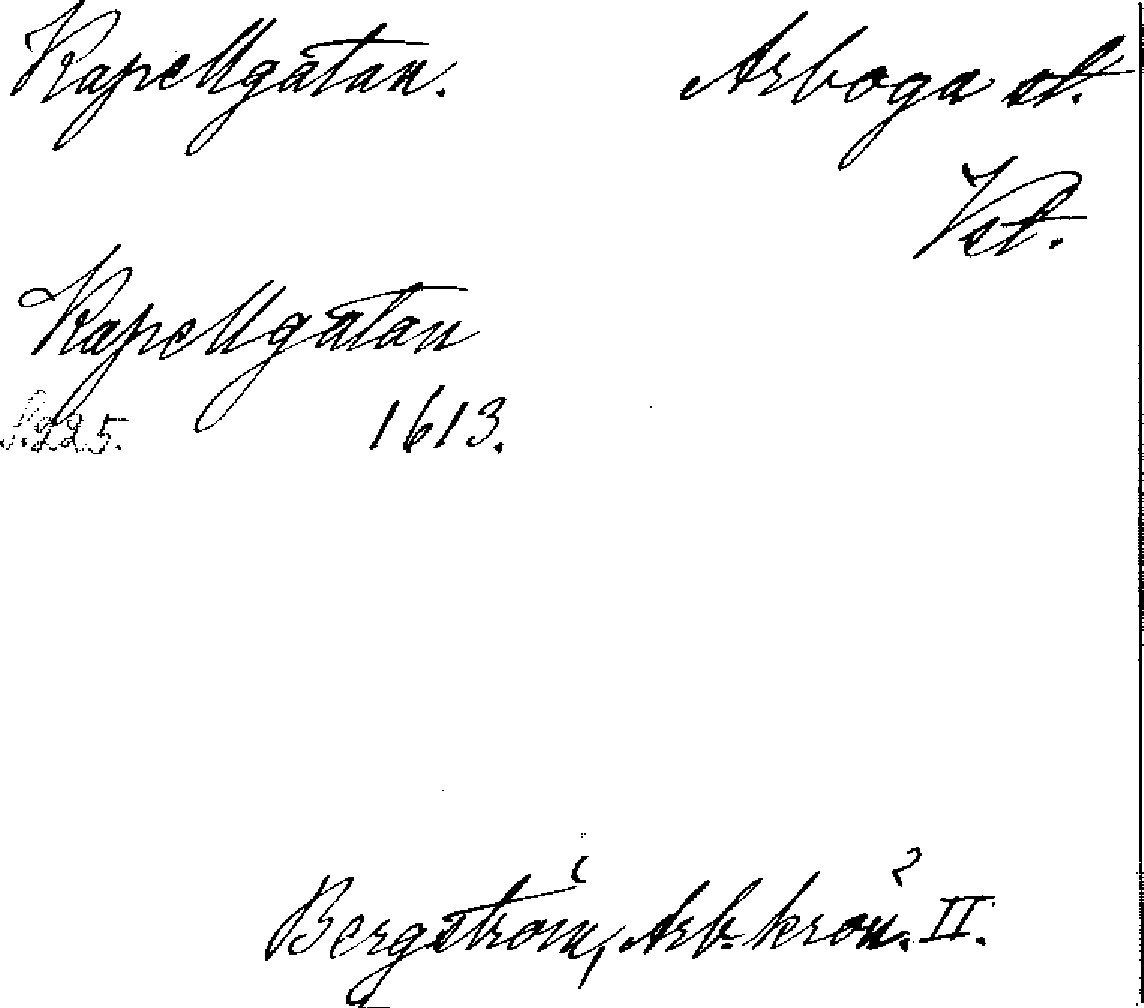 Kapellgatan. Arboga st.
Vst.
Kapellgatan
S. 225. 1613.
Bergström, Arb. krön. II.